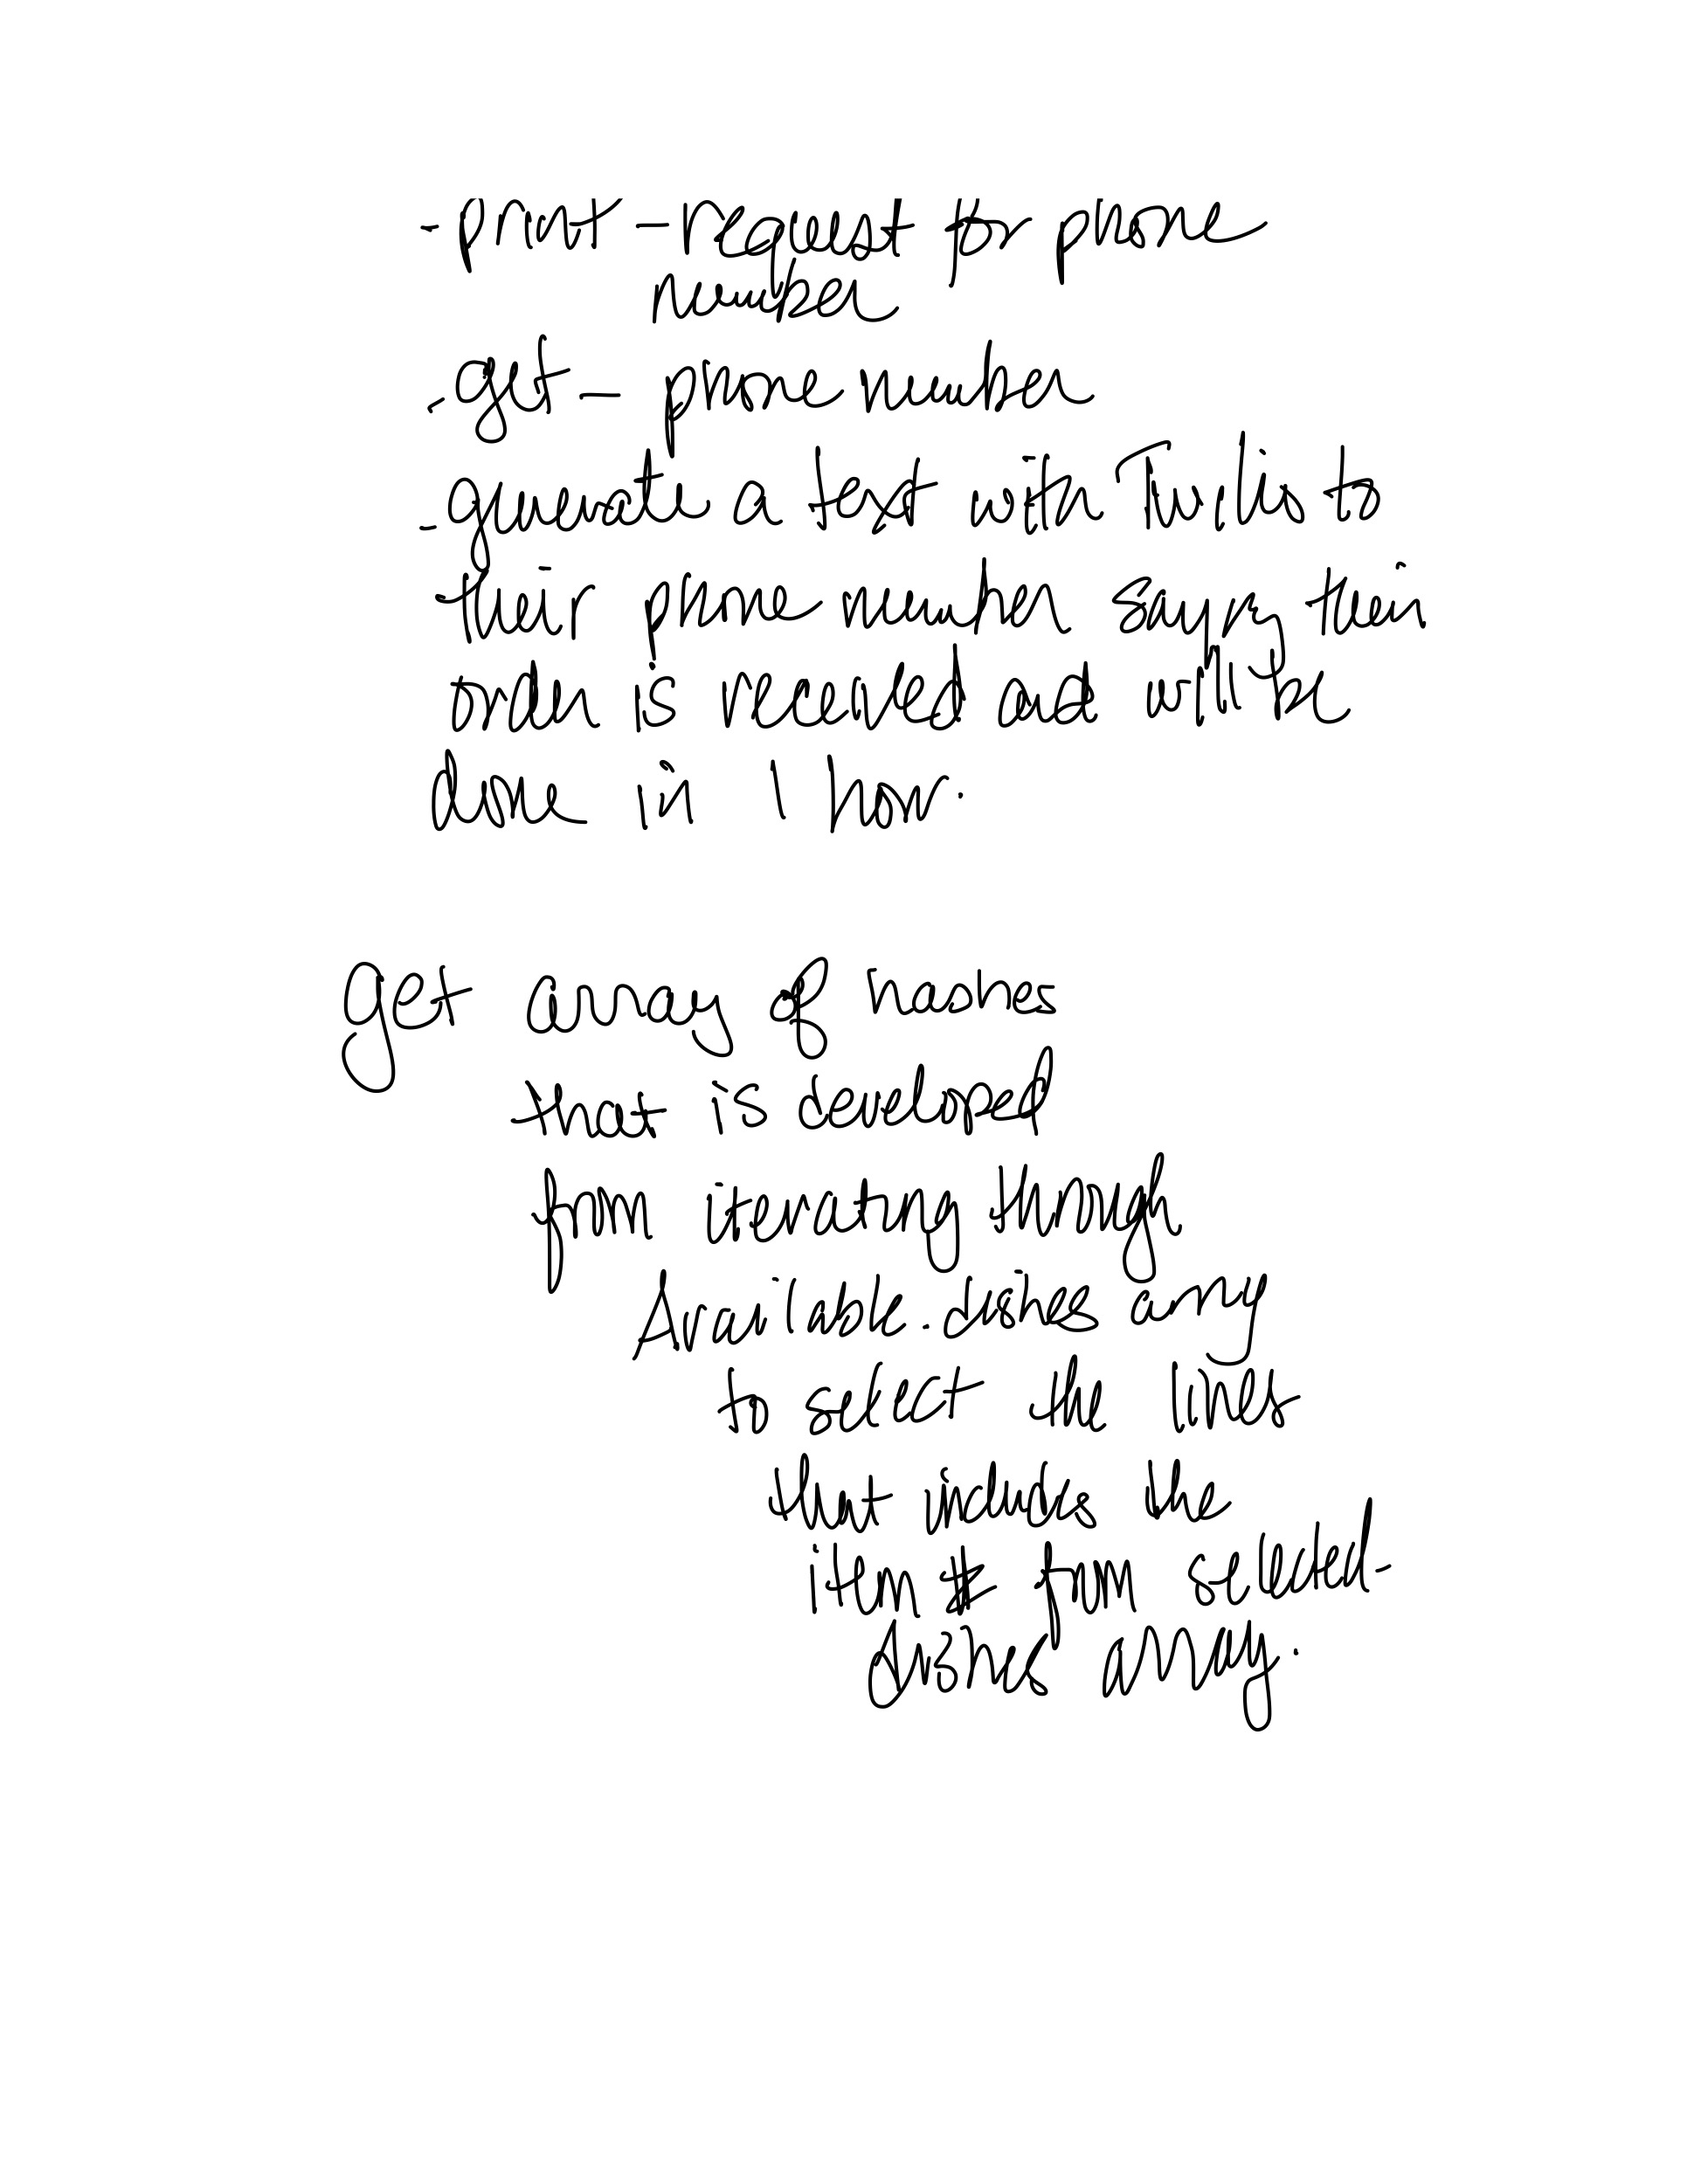 - print - request for phone
number
- get - phone number
- generate a text with Twilio to
their phone number saying their
order is received and will be
done in 1 hour.
get array of hashes
that is developed
from iterating through
Available.dishes array
to select the lines
that includes the
item # from selected-
dishes array.